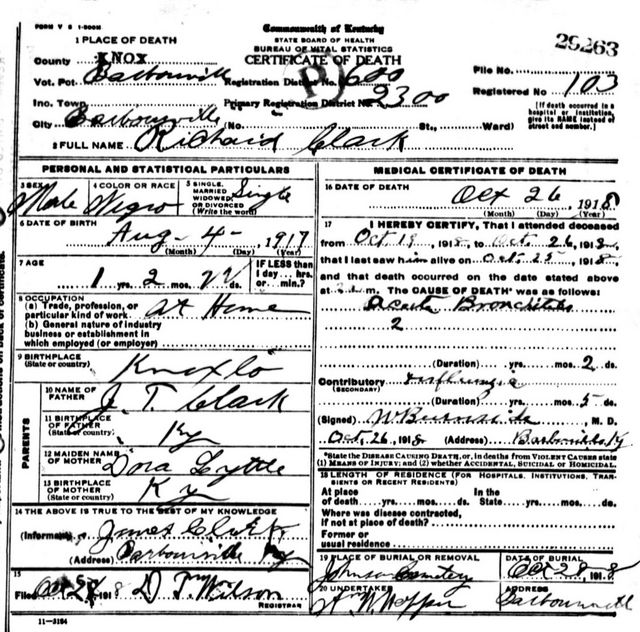 FORM V S 1-500M
Commonwealth of Kentucky
STATE BOARD OF HEALTH
BUREAU OF VITAL STATISTICS
CERTIFICATE OF DEATH
29263
1 PLACE OF DEATH
County KNOX
File No.
Vot. Pct Barbourville Registration District No. 600
Registered No. 103
Inc. Town Primary Registration District No. 2300
[If death occurred in a hospital or institution, give its NAME instead of street and number.]
City Barbourville (No. St., Ward)
2 FULL NAME Richard Clark
PERSONAL AND STATISTICAL PARTICULARS
3 SEX Male
4 COLOR OR RACE Negro
5 SINGLE, MARRIED, WIDOWED, OR DIVORCED (Write the word) Single
6 DATE OF BIRTH Aug - 4 - , 1917
(Month) (Day) (Year)
7 AGE
1 yrs. 2 mos. 22 ds.
IF LESS than 1 day....hrs. or....min.?
8 OCCUPATION
(a) Trade, profession, or particular kind of work At Home
(b) General nature of industry business or establishment in which employed (or employer)
9 BIRTHPLACE
(State or country) Knox Co
PARENTS
10 NAME OF FATHER J. T. Clark
11 BIRTHPLACE OF FATHER (State or country) Ky
12 MAIDEN NAME OF MOTHER Dora Lyttle
13 BIRTHPLACE OF MOTHER (State or country) Ky
14 THE ABOVE IS TRUE TO THE BEST OF MY KNOWLEDGE
(Informant) James Clark
(Address) Barbourville Ky
15
Filed Oct 191 8 Wilson
REGISTRAR
11-3184
MEDICAL CERTIFICATE OF DEATH
16 DATE OF DEATH
Oct 26, 1918
(Month) (Day) (Year)
17 I HEREBY CERTIFY, That I attended deceased
from Oct 19, 1918, to Oct 26, 1918,
that I last saw him alive on Oct 25, 1918,
and that death occurred on the date stated above
at m. The CAUSE OF DEATH* was as follows:
Acute Bronchitis
2
(Duration) yrs. mos. 2 ds.
Contributory Influenza
(SECONDARY)
(Duration) yrs. mos. 5 ds.
(Signed) W Burnside, M. D.
Oct. 26, 1918 (Address) Barbourville Ky
*State the DISEASE CAUSING DEATH, or, in deaths from VIOLENT CAUSES state (1) MEANS OF INJURY; and (2) whether ACCIDENTAL, SUICIDAL or HOMICIDAL.
18 LENGTH OF RESIDENCE (FOR HOSPITALS, INSTITUTIONS, TRANSIENTS OR RECENT RESIDENTS)
At place of death....yrs....mos....ds. In the State....yrs....mos....ds.
Where was disease contracted, if not at place of death?
Former or usual residence
19 PLACE OF BURIAL OR REMOVAL Johnson Cemetery
DATE OF BURIAL Oct 28 1918
20 UNDERTAKER
Barbourville